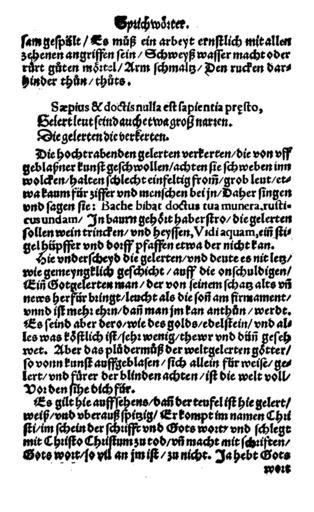 Sprichwörter.
sam gespält / Es müß ein arbeyt ernstlich mit allen
zehenen angriffen sein / Schweyß wasser macht oder
rürt güten mörtel / Arm schmaltz / Den rucken dar-
hinder thün / thüts.
Sæpius & doctis nulla est sapientia pręsto,
Gelert leut seind auch etwa groß narren.
Die gelerten die verkerten.
Die hochtrabenden gelerten verkerten / die von uff
geblaßner kunst geschwollen / achten sie schweben inn
wolcken / halten schlecht einfeltig from̃ / grob leut / et-
wa kaum für ziffer und menschen bei jn / Daher singen
und sagen sie: Bache bibat doctus tua munera, rusti-
cus undam / Jn baurn gehört haberstro / die gelerten
sollen wein trincken / und heyssen, Vidi aquam, ein sti-
gel hüpffer und dorff pfaffen etwa der nicht kan.
Hie underscheyd die gelerten / und deute es nit letz /
wie gemeyngklich geschicht / auff die onschuldigen /
Ein̄ Gotgelerten man / der von seinem schatz alts vn̄
news herfür bringt / leucht als die son̄ am firmament /
vnnd ist mehr ehrn / dan̄ man jm kan anthün / werdt.
Es seind aber dero / wie des golds / edelstein / und al-
les was köstlich ist / sehr wenig / thewr und dün̄ gesch
wet. Aber das plüdermüß der weltgelerten götter /
so vonn kunst auffgblasen / sich allein für weise / ge-
lert / und fürer der blinden achten / ist die welt voll /
Vor den sihe dich für.
Es gilt hie auffsehens / dan̄ der teufel ist hie gelert /
weiß / und uberauß spitzig / Er kompt im namen Chri
sti / im schein der schrifft und Gots wort / und schlegt
mit Christo Christum zu tod / vn̄ macht mit schrifften /
Gots wort / so vil an jm ist / zu nicht. Ja hebt Gots
wort